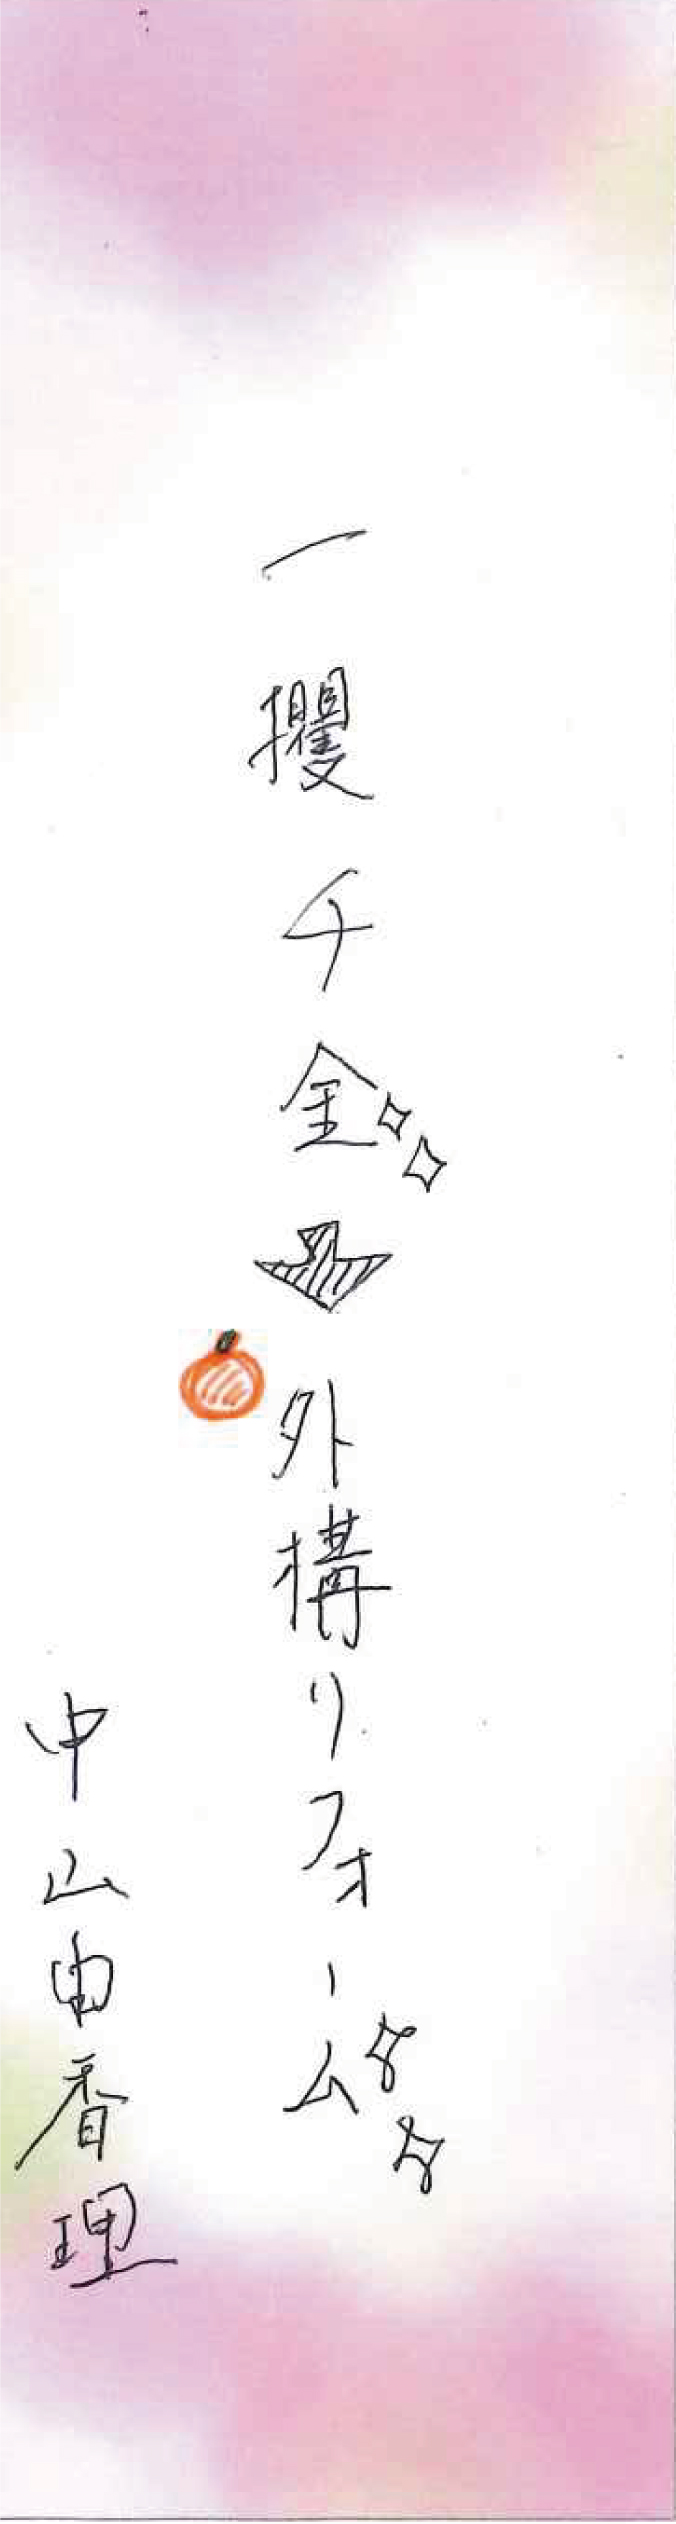 一攫千金
外構リフォーム
中山由香理